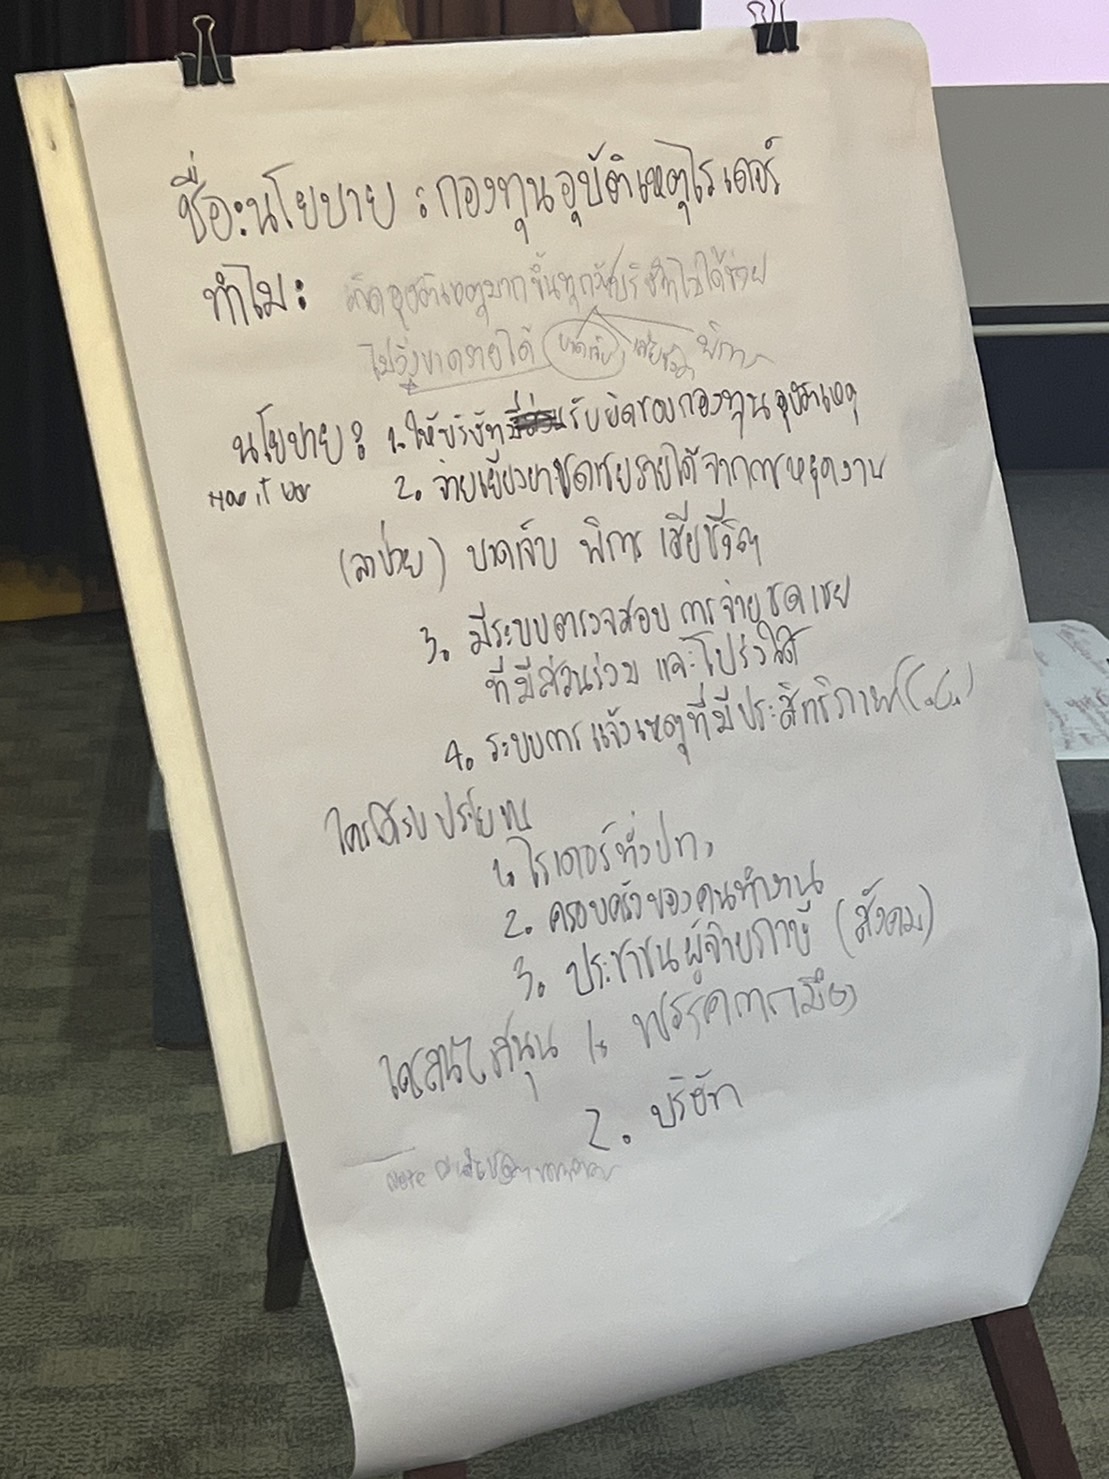 ชื่อ:นโยบาย : กองทุนอุบัติเหตุไรเดอร์
ทำไม : เกิดอุบัติเหตุมากขึ้นทุกวันบริษัทไม่ได้ช่วย
ไม่วิ่งขาดรายได้ บาดเจ็บ เสียชีวิต พิการ
นโยบาย : 1. ให้บริษัทรับผิดชอบกองทุนอุบัติเหตุ
How it 2. จ่ายเยียวยาชดเชยรายได้จากการหยุดงาน
(ลาป่วย) บาดเจ็บ พิการ เสียชีวิต
3. มีระบบตรวจสอบ การจ่ายชดเชย
ที่มีส่วนร่วม และโปร่งใส
4. ระบบการแจ้งเหตุที่มีประสิทธิภาพ
ใครได้รับประโยชน์
1. ไรเดอร์ทั่วปท.
2. ครอบครัวของคนทำงาน
3. ประชาชนผู้จ่ายภาษี (สังคม)
1. พรรคการเมือง
2. บริษัท
Note